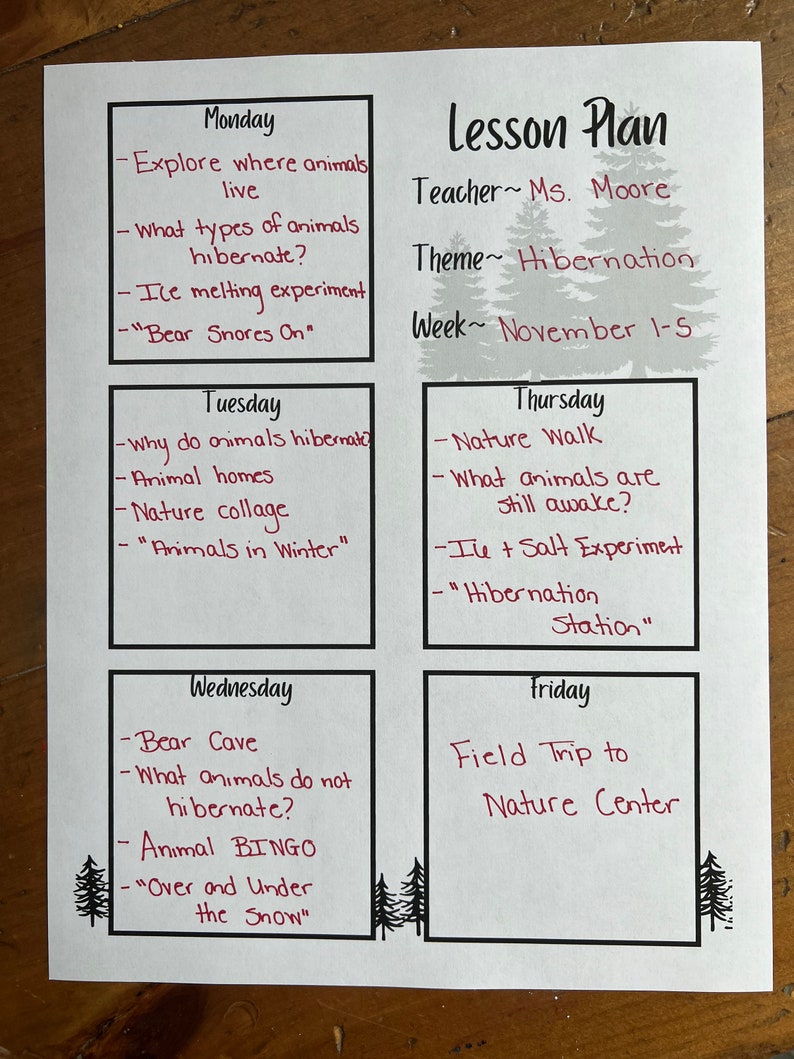 Lesson Plan
Teacher~ Ms. Moore
Theme~ Hibernation
Week~ November 1-5
Monday
- Explore where animals
live
- What types of animals
hibernate?
- Ice melting experiment
- "Bear Snores On"
Tuesday
- Why do animals hibernate?
- Animal homes
- Nature collage
- "Animals in Winter"
Wednesday
- Bear Cave
- What animals do not
hibernate?
- Animal BINGO
- "Over and Under
the Snow"
Thursday
- Nature Walk
- What animals are
still awake?
- Ice + Salt Experiment
- "Hibernation
Station"
Friday
Field Trip to
Nature Center